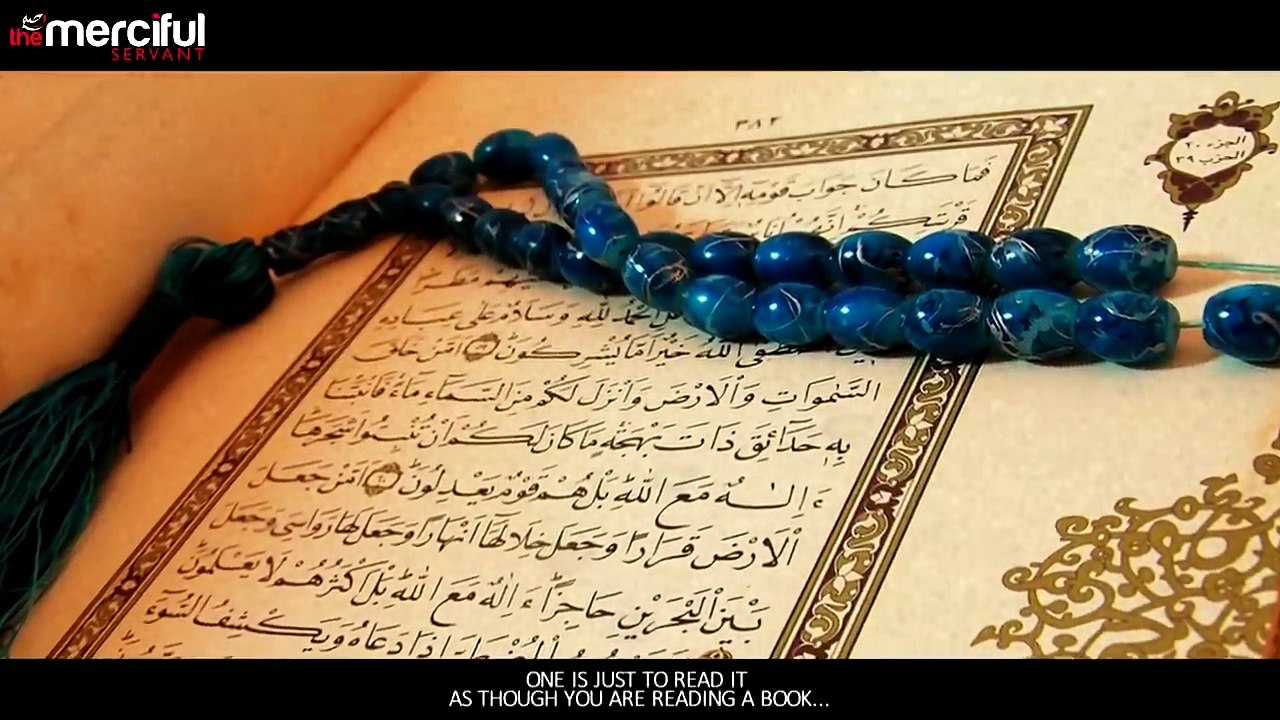 the merciful
SERVANT
٣٨٢
الجزء ٢٠
الحزب ٣٩
فَمَا كَانَ جَوَابَ قَوْمِهِ إِلَّا أَنْ قَالُوا
قُلِ الْحَمْدُ لِلَّهِ وَسَلَامٌ عَلَى عِبَادِهِ
اللَّهُ خَيْرٌ أَمَّا يُشْرِكُونَ أَمَّنْ خَلَقَ
السَّمٰوَاتِ وَالْأَرْضَ وَأَنْزَلَ لَكُمْ مِنَ السَّمَاءِ مَاءً فَأَنْبَتْنَا
بِهِ حَدَائِقَ ذَاتَ بَهْجَةٍ مَا كَانَ لَكُمْ أَنْ تُنْبِتُوا شَجَرَهَا
ءَإِلٰهٌ مَعَ اللَّهِ بَلْ هُمْ قَوْمٌ يَعْدِلُونَ أَمَّنْ جَعَلَ
الْأَرْضَ قَرَارًا وَجَعَلَ خِلَالَهَا أَنْهَارًا وَجَعَلَ لَهَا رَوَاسِيَ وَجَعَلَ
بَيْنَ الْبَحْرَيْنِ حَاجِزًا ءَإِلٰهٌ مَعَ اللَّهِ بَلْ أَكْثَرُهُمْ لَا يَعْلَمُونَ
الْمُضْطَرَّ إِذَا دَعَاهُ وَيَكْشِفُ السُّوءَ
ONE IS JUST TO READ IT
AS THOUGH YOU ARE READING A BOOK...